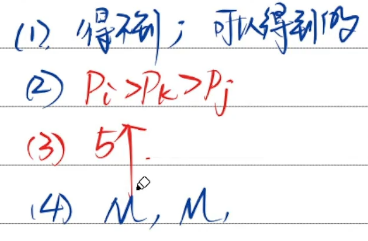 (1) 得不到；可以得到的
(2) Pi>Pk>Pj
(3) 5个.
(4) M, M,